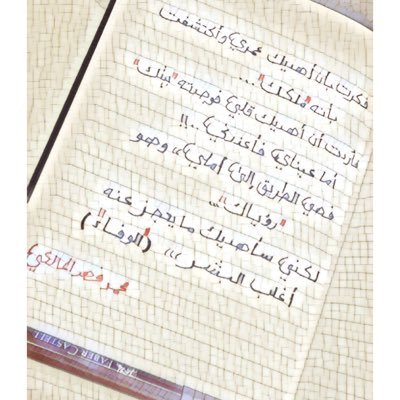 فكرت بأن أهديك عمري وأكتشفت
بأنه "ملكك" ...
فأردت أن أهديك قلبي فوجدته "بيتك"
أما عيناي فأعذرني ..!!
فهي الطريق إلى أملي ،، وهو
"رؤياك" ..
لكني سأهديك ما يعجز عنه
أغلب البشر ،، (الوفاء)
محمد فهد المالكي
FABER-CASTELL